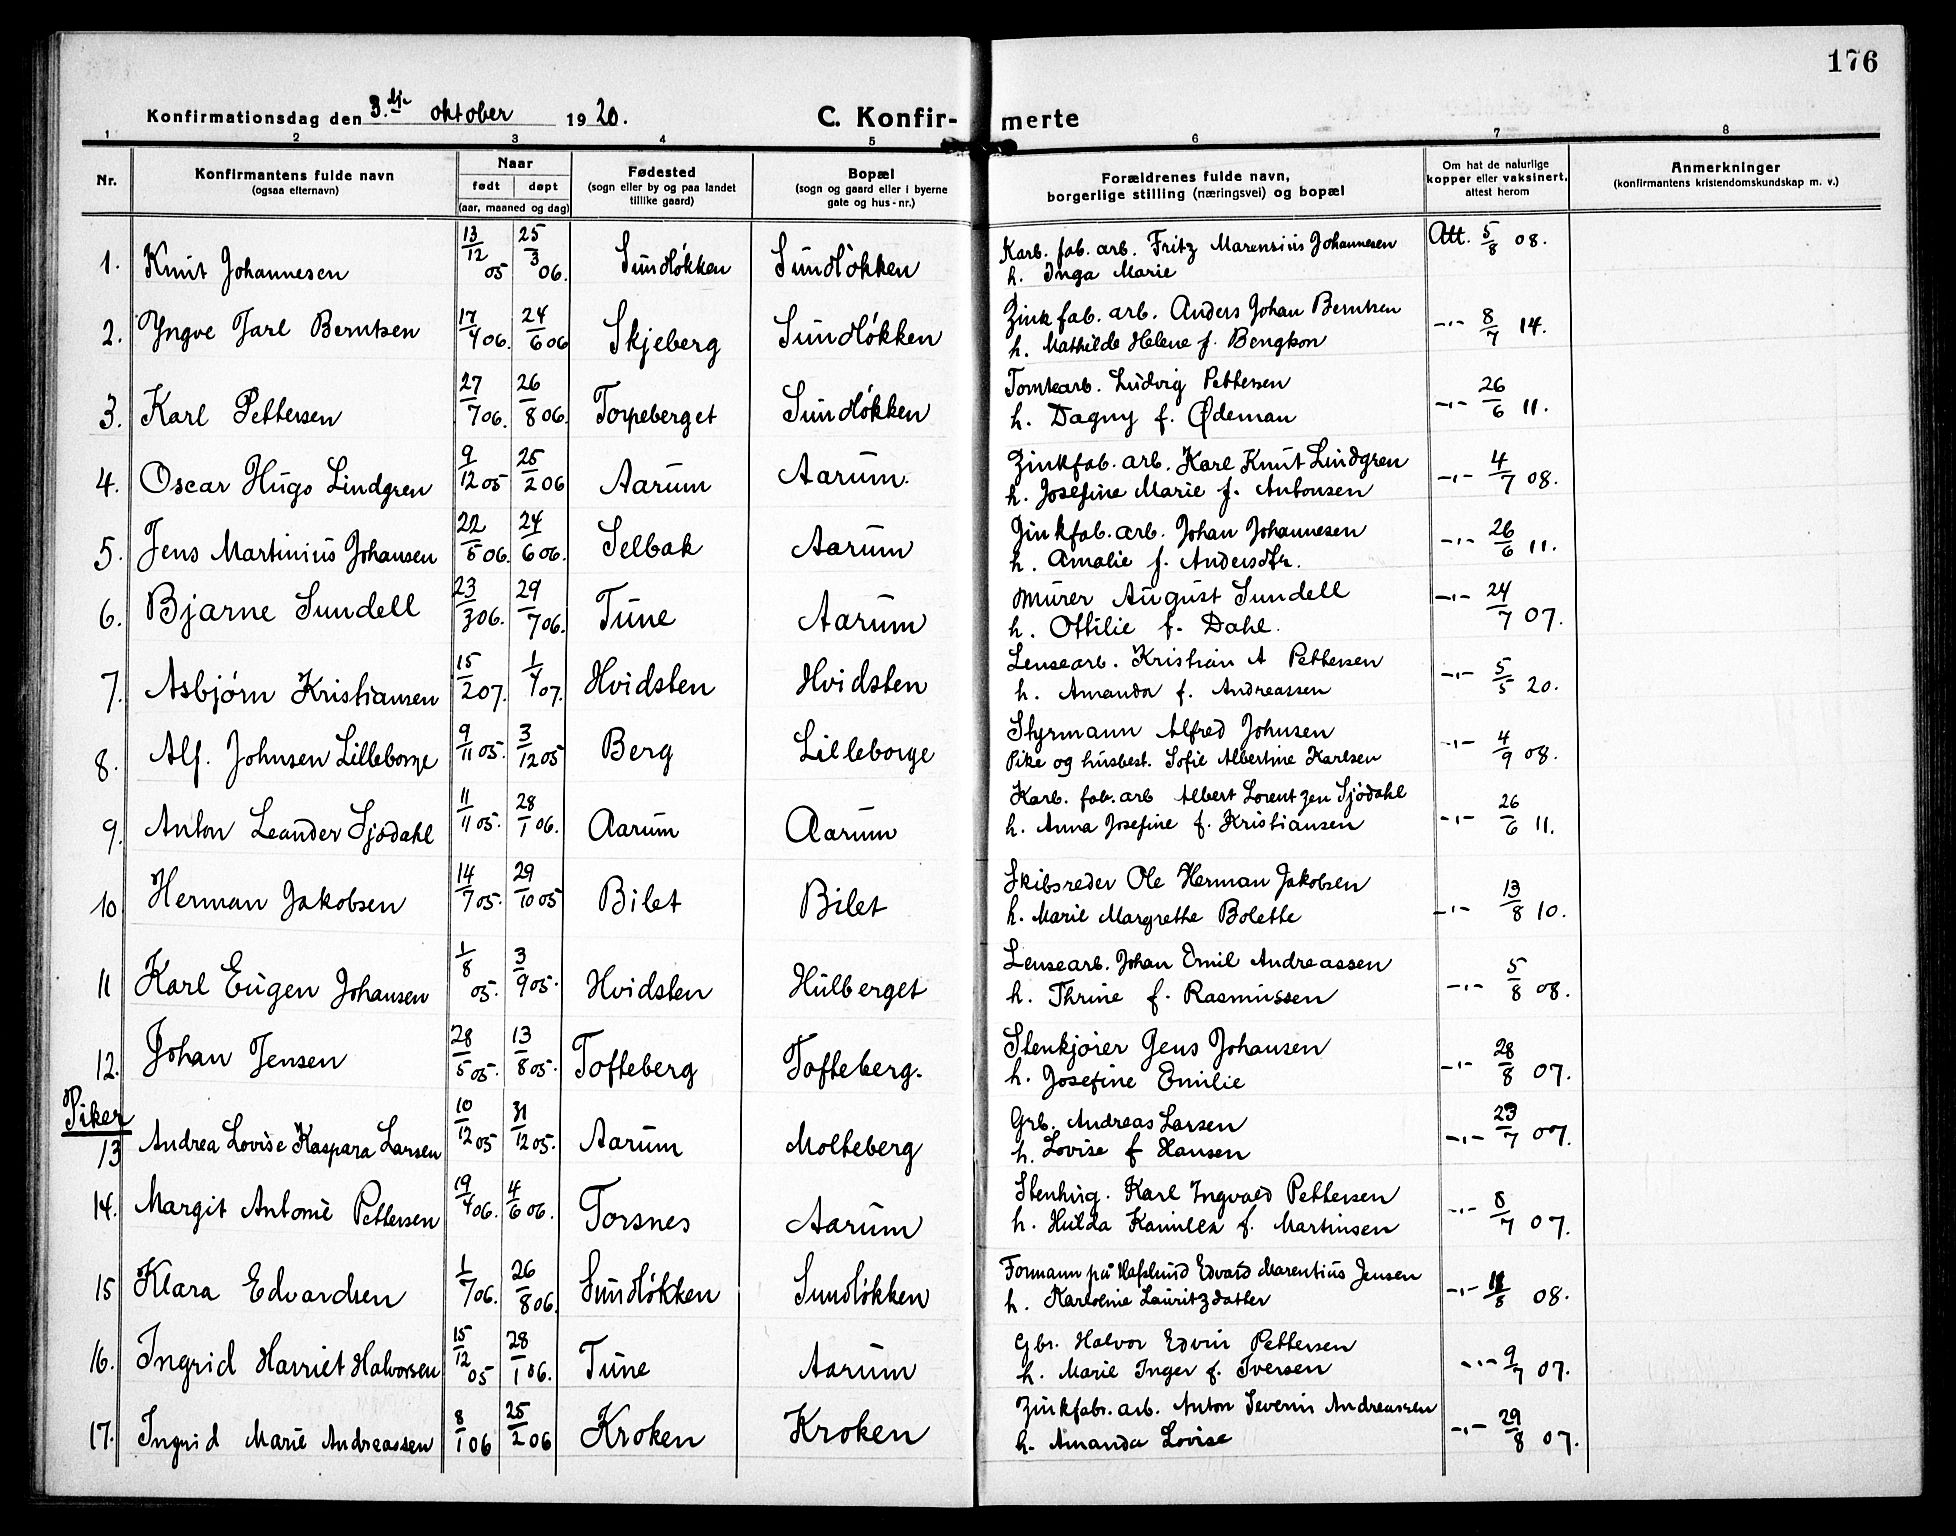 176
Konfirmationsdag den 3. dje oktober 1920.
C. Konfir- merte
1 2 3 4 5 6 7 8
Nr.
Konfirmantens fulde navn
(ogsaa efternavn)
Naar
født døpt
(aar, maaned og dag)
Fødested
(sogn eller by og paa landet
tillike gaard)
Bopæl
(sogn og gaard eller i byerne
gate og hus-nr.)
Forældrenes fulde navn,
borgerlige stilling (næringsvei) og bopæl
Om hat de naturlige
kopper eller vaksinert,
attest herom
Anmerkninger
(konfirmantens kristendomskundskap m. v.)
1. Knut Johannesen 13/12 05 25/3 06. Sundløkken Sundløkken Karb. fab. arb. Fritz Marensius Johannesen Att. 5/8 08.
h. Inga Marie
2. Yngve Jarl Berntsen 17/4 06. 24/6 06 Skjeberg Sundløkken Zink fab. arb. Anders Johan Berntsen -"- 8/7 14.
h. Mathilde Helene f. Bengtson
3. Karl Pettersen 27/7 06. 26/8 06. Torpeberget Sundløkken Tomtearb. Ludvig Pettersen -"- 26/6 11.
h. Dagny f. Ødeman
4. Oscar Hugo Lindgren 9/12 05 25/2 06 Aarum Aarum. Zinkfab. arb. Karl Knut Lindgren -"- 4/7 08.
h. Josefine Marie f. Antonsen
5. Jens Martinius Johansen 22/5 06. 24/6 06. Selbak Aarum Zinkfab. arb. Johan Johannesen -"- 26/6 11.
h. Amalie f. Andersdtr.
6. Bjarne Sundell 23/3 06. 29/7 06. Tune Aarum Murer August Sundell -"- 24/7 07.
h. Ottilie f. Dahl.
7. Asbjørn Kristiansen 15/2 07. 1/4 07. Hvidsten Hvidsten Lensearb. Kristian A Pettersen -"- 5/5 20.
h. Amanda f. Andreassen
8. Alf. Johnsen Lilleborge 9/11 05. 3/12 05 Berg Lilleborge Styrmann Alfred Johnsen -"- 4/9 08.
Pike og husbest. Sofie Albertine Karlsen
9. Anton Leander Sjødahl 11/11 05. 28/1 06. Aarum Aarum Karb. fab. arb Albert Lorentzen Sjödahl -"- 26/6 11.
h. Anna Josefine f. Kristiansen
10 Herman Jakobsen 14/7 05. 29/10 05 Bilet Bilet Skibsreder Ole Herman Jakobsen -"- 13/8 10.
h. Marie Margrethe Bolette
11 Karl Eugen Johansen 1/8 05. 3/9 05. Hvidsten Hulberget Lensearb. Johan Emil Andreassen -"- 5/8 08.
h. Thrine f. Rasmussen
12. Johan Jensen 28/5 05. 13/8 05. Tofteberg Tofteberg. Stenkjører Jens Johansen -"- 28/8 07.
h. Josefine Emilie
Piker
13 Andrea Lovise Kaspara Larsen 10/12 05 31/12 05. Aarum Molteberg Grb. Andreas Larsen -"- 23/7 07.
h. Lovise f Hansen
14. Margit Antonie Pettersen 19/4 06. 4/6 06. Torsnes Aarum Stenhug. Karl Ingvald Pettersen -"- 8/7 07.
h. Hulda Kamilla f. Martinsen
15 Klara Edvardsen 1/7 06. 26/8 06. Sundløkken Sundløkken Formann på Hafslund Edvard Marentius Jensen -"- 11/8 08.
h. Karoline Lauritzdatter
16. Ingrid Harriet Halvorsen 15/12 05 28/1 06. Tune Aarum Gbr. Halvor Edvin Pettersen -"- 9/7 07.
h. Marie Inger f. Iversen
17. Ingrid Marie Andreassen 8/1 06 25/2 06 Kroken Kroken Zinkfabr. arb. Anton Severin Andreassen -"- 29/8 07.
h. Amanda Lovise